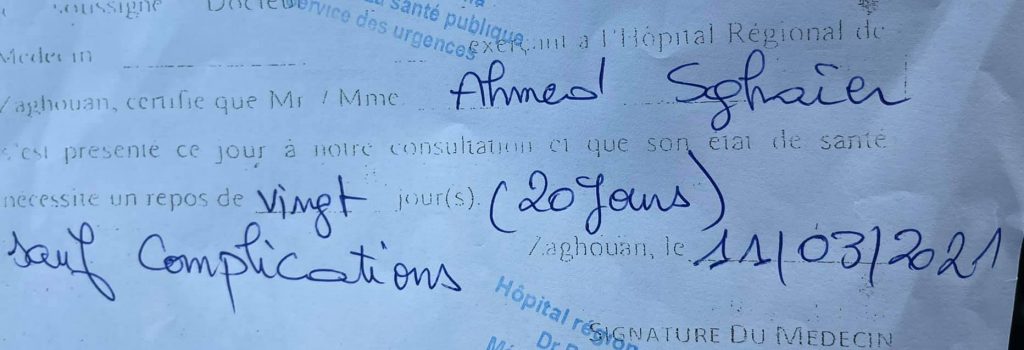 soussigné Docteur
santé publique
Service des urgences
Médecin exerçant à l'Hôpital Régional de
Zaghouan, certifie que Mr / Mme. Ahmed Sghaïer
s'est présenté ce jour à notre consultation et que son état de santé
nécessite un repos de vingt jour(s). (20 Jours)
sauf Complications
Zaghouan, le 11/03/2021
Hôpital
SIGNATURE DU MEDECIN
Dr